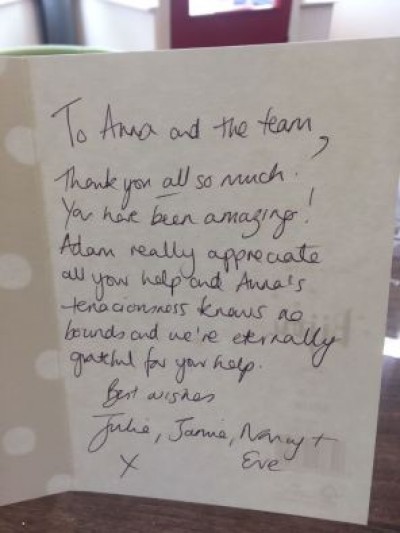 To Anna and the team,
Thank you all so much.
You have been amazing!
Adam really appreciate
all your help and Anna's
tenaciousness knows no
bounds and we're eternally
grateful for your help.
Best wishes
Julie, Jamie, Nancy +
X Eve